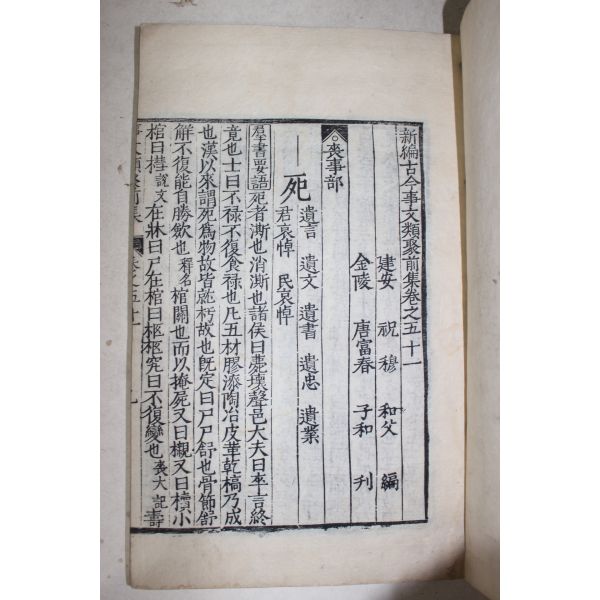 新編古今事文類聚前集卷之五十一
建安 祝穆 和父 編
金陵 唐富春 子和 刊
喪事部
遺言 遺文 遺書 遺忠 遺業
死
君哀悼 民哀悼
羣書要語 死者澌也消澌也諸侯曰薨壞聲邑大夫曰卒言終
竟也士曰不禄不復食禄也凡五材膠漆陶冶皮革乾槁乃成
也漢以來謂死爲物故皆就朽故也既定曰尸尸舒也骨節舒
解不復能自勝斂也釋名棺關也而以掩屍又曰櫬又曰櫝小
棺曰槥說文在牀曰尸在棺曰柩柩究曰不復變也喪大記壽
事文類聚前集 卷之五十一